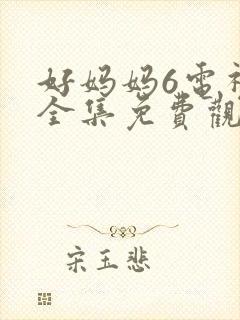 好妈妈6电视
全集免費觀
宋玉悲